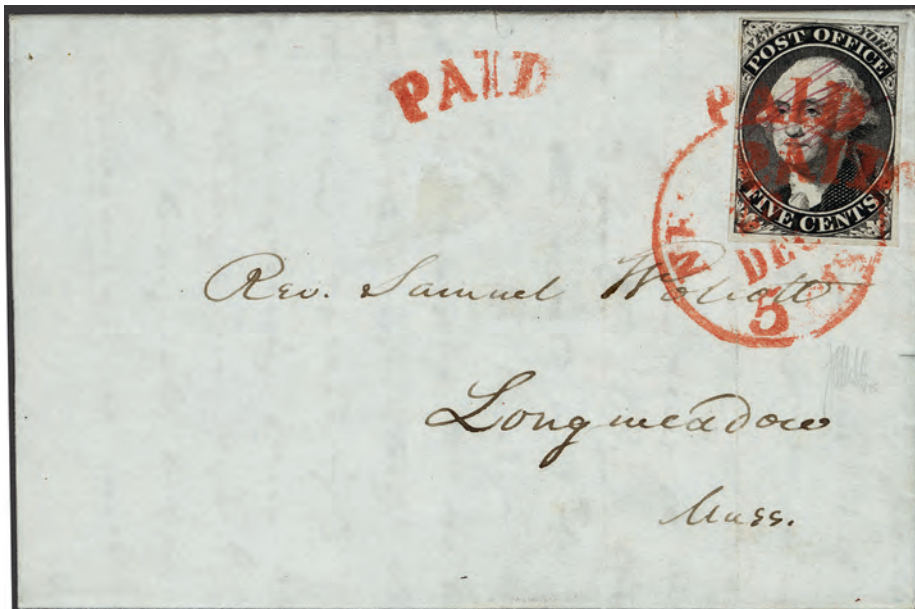 PAID
NEW YORK
POST OFFICE
FIVE CENTS
PAID
PAID
DEC
5
Rev. Samuel Wolcott
Longmeadow
Mass.